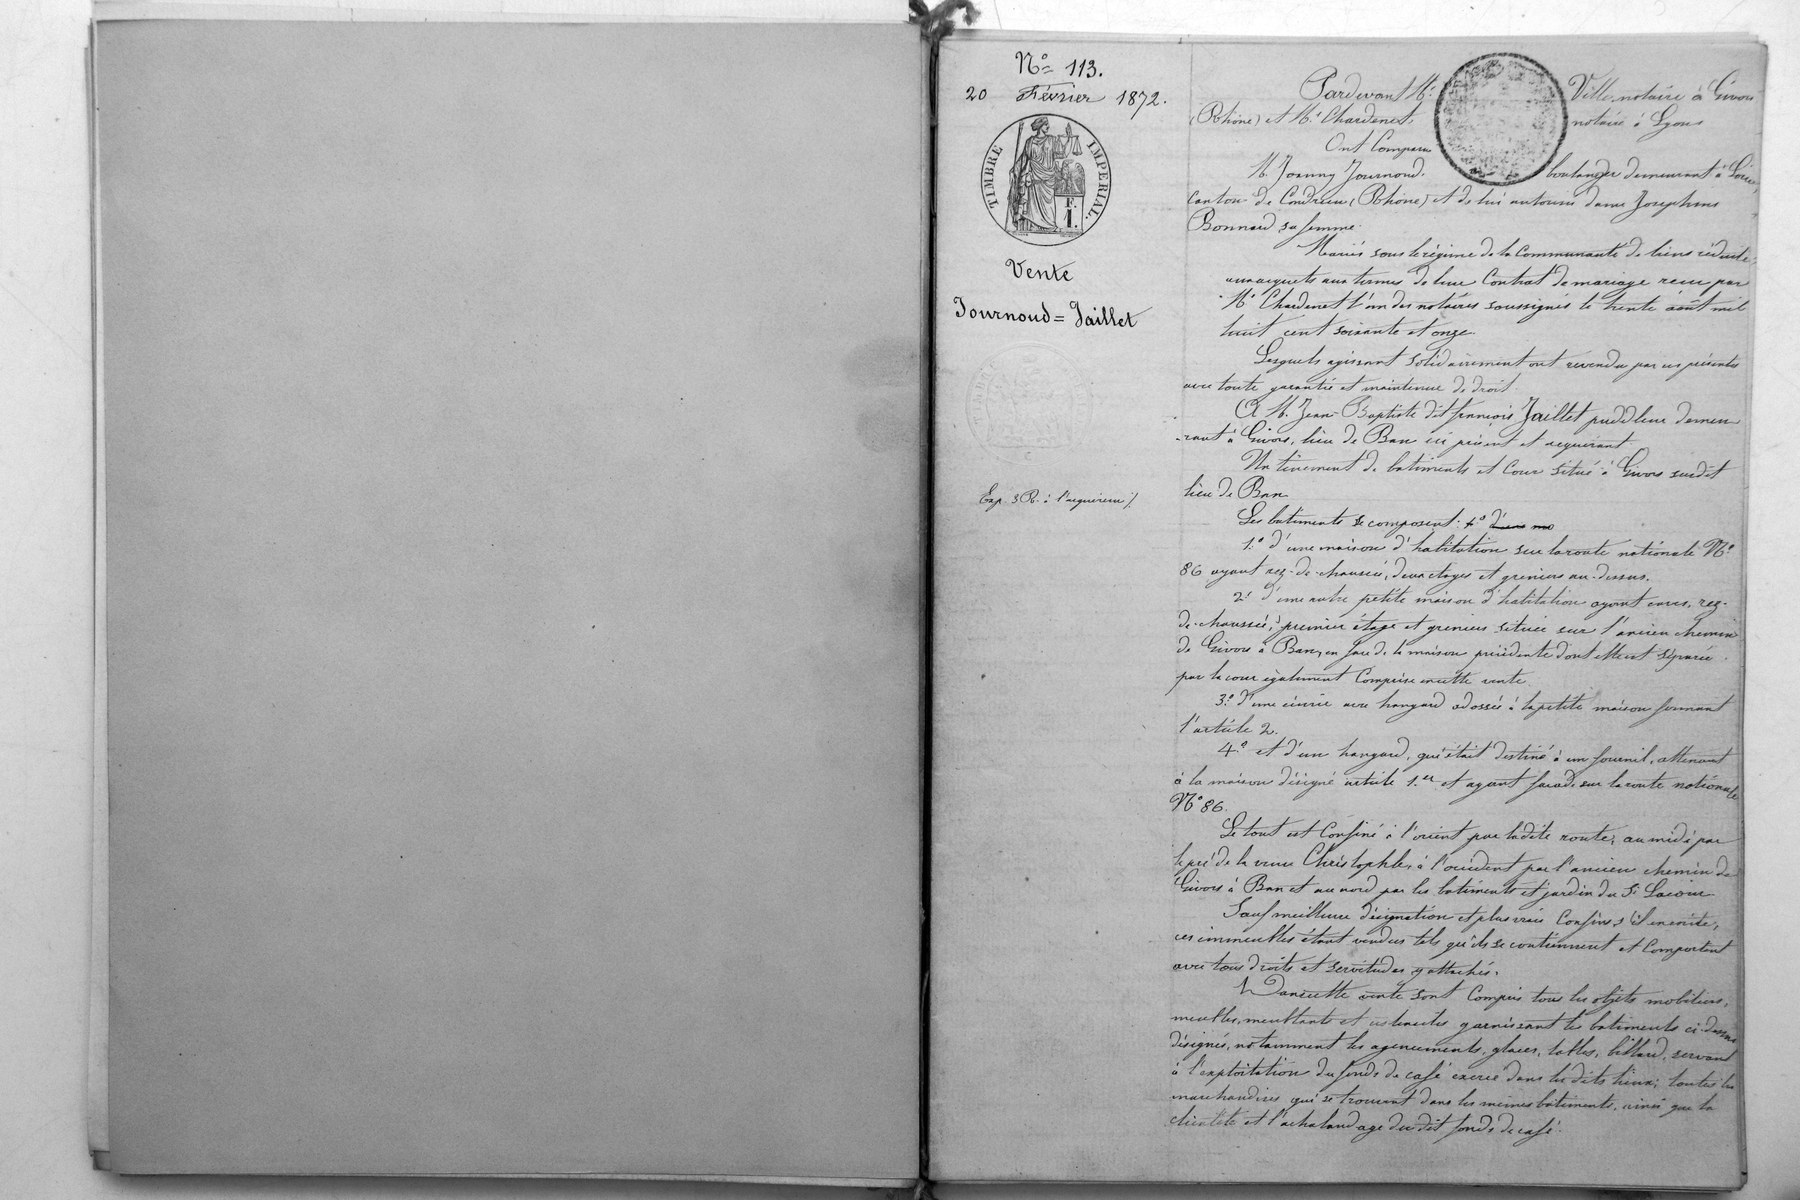 N° 113.
20 Février 1872.
TIMBRE IMPERIAL.
F.
1.
Vente
Journoud = Jaillet
Exp. 3 R. à l'acquéreur /.
Pardevant Me Ville, notaire à Givors
(Rhône) et Me Chardenet notaire à Lyon
Ont Comparu
M. Joanny Journoud, boulanger demeurant à Loire,
canton de Condrieu (Rhône) et de lui autorisée dame Josephine
Bonnard sa femme.
Mariés sous le régime de la Communauté de biens réduite
aux acquets aux termes de leur Contrat de mariage reçu par
Me Chardenet l'un des notaires soussignés le trente août mil
huit cent soixante et onze.
Lesquels agissant solidairement ont revendu par ces présentes
avec toute garantie et maintenue de droit.
A M. Jean-Baptiste dit françois Jaillet puddleur demeu
-rant à Givors, lieu de Ban ici présent et requérant
Un tènement de batiments et Cour situé à Givors susdit
lieu de Ban
Les batiments se composent: 1° d'une mo
1.° d'une maison d'habitation sur la route nationale N°
86 ayant rez-de-chaussée, deux étages et greniers au-dessus.
2° d'une autre petite maison d'habitation ayant caves, rez-
de-chaussée, premier étage et greniers située sur l'ancien chemin
de Givors à Ban, en face de la maison précédente dont elle est séparée
par la cour également Comprise en cette vente
3.° d'une écurie avec hangard adossée à la petite maison formant
l'article 2.
4.° et d'un hangard, qui était destiné à un fournil, attenant
à la maison désigné article 1.er et ayant façade sur la route nationale
N° 86.
Le tout est Confiné à l'orient par ladite route, au midi par
le pré de la veuve Christophle, à l'occident par l'ancien chemin de
Givors à Ban et au nord par les batiments et jardin du Sr Lacour
Sauf meilleure désignation et plus vrais Confins, s'il en existe,
ces immeubles étant vendus tels qu'ils se contiennent et Comportent
avec tous droits et servitudes y attachés.
Dans cette vente sont Compris tous les objets mobiliers,
meubles, meublants et ustensiles garnissant les batiments ci-dessus
désignés, notamment les agencements, glaces, tables, billard, servant
à l'exploitation du fonds de café exercé dans les dits lieux; toutes les
marchandises qui se trouvent dans les mêmes bâtiments, ainsi que la
clientèle et l'achalandage du dit fonds de café.